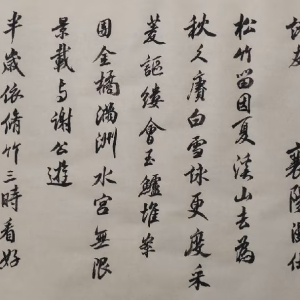 友 襄陽漫仕
松竹留因夏溪山去為
秋久賡白雪詠更度采
菱謳縷會玉鱸堆案
團金橘滿洲水宮無限
景載与謝公遊
半歲依脩竹三時看好